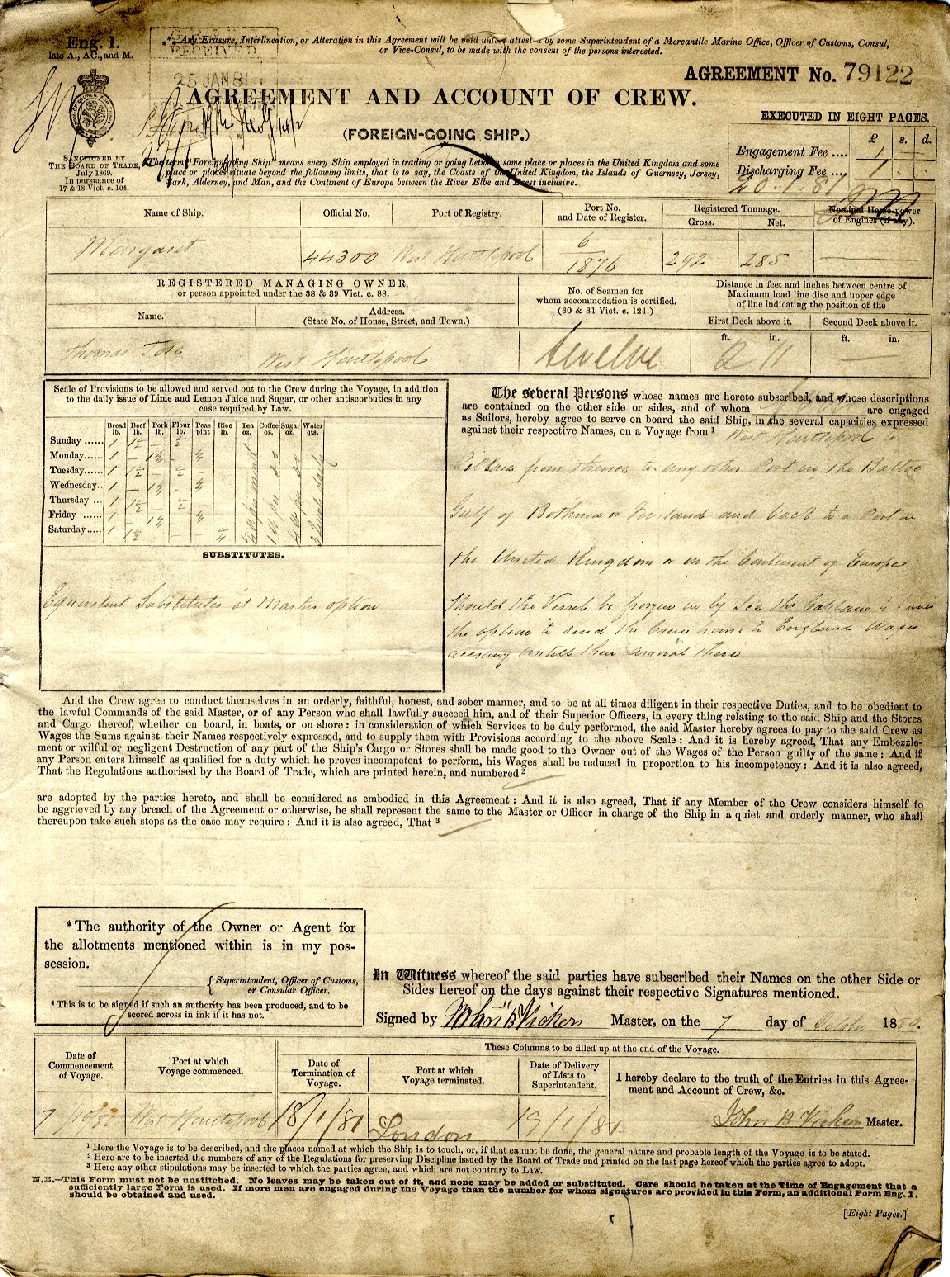 Eng. 1.
late A., AC., and M.
RECEIVED
25 JAN 81
*** Any Erasure, Interlineation, or Alteration in this Agreement will be void unless attested by some Superintendent of a Mercantile Marine Office, Officer of Customs, Consul,
or Vice-Consul, to be made with the consent of the persons interested.
AGREEMENT No. 79122
AGREEMENT AND ACCOUNT OF CREW.
(FOREIGN-GOING SHIP.)
EXECUTED IN EIGHT PAGES.
£ s. d.
Engagement Fee .... 1
Discharging Fee .... 1
20.1.81
SANCTIONED BY
THE BOARD OF TRADE,
July 1869.
In pursuance of
17 & 18 Vict. c. 104
The term "Foreign-going Ship" means every Ship employed in trading or going between some place or places in the United Kingdom and some
place or places situate beyond the following limits, that is to say, the Coasts of the United Kingdom, the Islands of Guernsey, Jersey,
Sark, Alderney, and Man, and the Continent of Europe between the River Elbe and Brest inclusive.
Name of Ship. Official No. Port of Registry. Port No. and Date of Register. Registered Tonnage. Gross. Net. Nominal Horse-power of Engines (if any).
Margaret 44300 West Hartlepool 6/1876 292 285
REGISTERED MANAGING OWNER,
or person appointed under the 38 & 39 Vict. c. 88.
Name. Address.
(State No. of House, Street, and Town.)
No. of Seamen for
whom accommodation is certified.
(30 & 31 Vict. c. 124)
Distance in feet and inches between centre of
Maximum load line disc and upper edge
of line indicating the position of the
First Deck above it. Second Deck above it.
ft. in. ft. in.
Thomas West Hartlepool twelve
Scale of Provisions to be allowed and served out to the Crew during the Voyage, in addition
to the daily issue of Lime and Lemon Juice and Sugar, or other antiscorbutics in any
case required by Law.
Bread lb. Beef lb. Pork lb. Flour lb. Peas pint Rice lb. Tea oz. Coffee oz. Sugar oz. Water qts.
Sunday 1 1½ ½
Monday 1 - 1¼ -
Tuesday 1 1½ - ½
Wednesday 1 - 1¼ -
Thursday 1 1½ - ½
Friday 1 1¼
Saturday 1 1½ - -
SUBSTITUTES.
Equivalent Substitutes at Masters option
The several Persons whose names are hereto subscribed, and whose descriptions
are contained on the other side or sides, and of whom are engaged
as Sailors, hereby agree to serve on board the said Ship, in the several capacities expressed
against their respective Names, on a Voyage from ¹ West Hartlepool to
from thence to any other Port in the Baltic
Gulf of Bothnia or Finland and back to a Port in
the United Kingdom or on the Continent of Europe
Should the Vessel be frozen in by Ice the Captain to have
the option to send the Crew home to England Wages
ceasing untill their arrival there
And the Crew agree to conduct themselves in an orderly, faithful, honest, and sober manner, and to be at all times diligent in their respective Duties, and to be obedient to
the lawful Commands of the said Master, or of any Person who shall lawfully succeed him, and of their Superior Officers, in every thing relating to the said Ship and the Stores
and Cargo thereof, whether on board, in boats, or on shore: in consideration of which Services to be duly performed, the said Master hereby agrees to pay to the said Crew as
Wages the Sums against their Names respectively expressed, and to supply them with Provisions according to the above Scale: And it is hereby agreed, That any Embezzle-
ment or wilful or negligent Destruction of any part of the Ship's Cargo or Stores shall be made good to the Owner out of the Wages of the Person guilty of the same: And if
any Person enters himself as qualified for a duty which he proves incompetent to perform, his Wages shall be reduced in proportion to his incompetency: And it is also agreed,
That the Regulations authorised by the Board of Trade, which are printed herein, and numbered ²
are adopted by the parties hereto, and shall be considered as embodied in this Agreement: And it is also agreed, That if any Member of the Crew considers himself to
be aggrieved by any breach of the Agreement or otherwise, he shall represent the same to the Master or Officer in charge of the Ship in a quiet and orderly manner, who shall
thereupon take such steps as the case may require: And it is also agreed, That ³
* The authority of the Owner or Agent for
the allotments mentioned within is in my pos-
session.
Superintendent, Officer of Customs,
or Consular Officer.
* This is to be signed if such an authority has been produced, and to be
scored across in ink if it has not.
In Witness whereof the said parties have subscribed their Names on the other Side or
Sides hereof on the days against their respective Signatures mentioned.
Signed by John B Vickers Master, on the 7 day of October 1880.
Date of
Commencement
of Voyage.
Port at which
Voyage commenced.
These Columns to be filled up at the end of the Voyage.
Date of
Termination of
Voyage.
Port at which
Voyage terminated.
Date of Delivery
of Lists to
Superintendent.
I hereby declare to the truth of the Entries in this Agree-
ment and Account of Crew, &c.
7/10/80 West Hartlepool 18/1/81 London 19/1/81 John B Vickers Master.
¹ Here the Voyage is to be described, and the places named at which the Ship is to touch, or, if that cannot be done, the general nature and probable length of the Voyage is to be stated.
² Here are to be inserted the numbers of any of the Regulations for preserving Discipline issued by the Board of Trade and printed on the last page hereof which the parties agree to adopt.
³ Here any other stipulations may be inserted to which the parties agree, and which are not contrary to Law.
N.B.—This Form must not be unstitched. No leaves may be taken out of it, and none may be added or substituted. Care should be taken at the Time of Engagement that a
sufficiently large Form is used. If more men are engaged during the Voyage than the number for whom signatures are provided in this Form, an additional Form Eng. 1.
should be obtained and used.
[Eight Pages.]